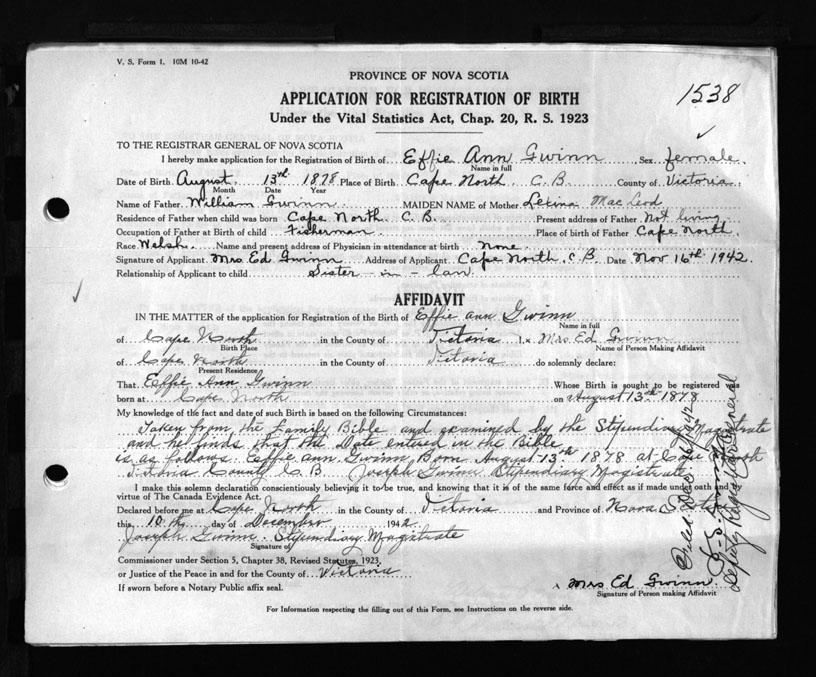 V. S. Form 1. 10M 10-42
PROVINCE OF NOVA SCOTIA
1538
APPLICATION FOR REGISTRATION OF BIRTH
Under the Vital Statistics Act, Chap. 20, R. S. 1923
TO THE REGISTRAR GENERAL OF NOVA SCOTIA
I hereby make application for the Registration of Birth of Effie Ann Gwinn, Sex female.
Name in full
Date of Birth August 13th 1878 Place of Birth Cape North C. B. County of Victoria
Month Date Year
Name of Father William Gwinn MAIDEN NAME of Mother MacLeod
Residence of Father when child was born Cape North C. B. Present address of Father Not living
Occupation of Father at Birth of child Fisherman Place of birth of Father Cape North.
Race Welsh. Name and present address of Physician in attendance at birth None
Signature of Applicant Mrs Ed Gwinn Address of Applicant Cape North, C. B. Date Nov 16th 1942
Relationship of Applicant to child Sister-in-law
AFFIDAVIT
IN THE MATTER of the application for Registration of the Birth of Effie Ann Gwinn
Name in full
of Cape North in the County of Victoria I, Mrs Ed Gwinn
Birth Place Name of Person Making Affidavit
of Cape North in the County of Victoria do solemnly declare:
Present Residence
That Effie Ann Gwinn Whose Birth is sought to be registered was
born at Cape North on August 13th 1878
My knowledge of the fact and date of such Birth is based on the following Circumstances:
Taken from the Family Bible and examined by the Stipendiary Magistrate
and he finds that the Date entered in the Bible
is as follows. Effie Ann Gwinn Born August 13th 1878 at Cape North
Victoria County C B Joseph Gwinn, Stipendiary Magistrate
I make this solemn declaration conscientiously believing it to be true, and knowing that it is of the same force and effect as if made under oath and
virtue of The Canada Evidence Act.
Declared before me at Cape North in the County of Victoria and Province of Nova Scotia
this 10th day of December 1942
Joseph Gwinn. Stipendiary Magistrate
Signature of
Commissioner under Section 5, Chapter 38, Revised Statutes, 1923,
or Justice of the Peace in and for the County of Victoria
If sworn before a Notary Public affix seal.
x Mrs Ed Gwinn.
Signature of Person making Affidavit
For Information respecting the filling out of this Form, see Instructions on the reverse side.
Filed Dec.
Deputy Registrar General